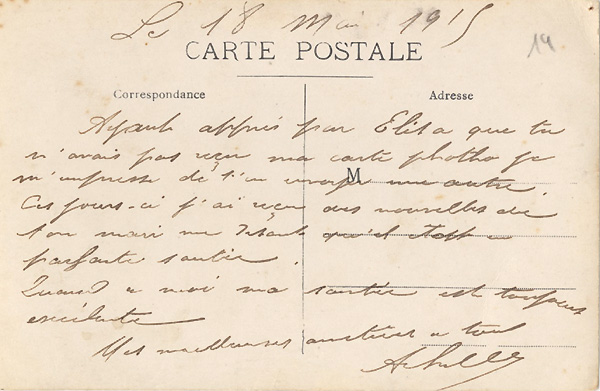 Le 18 Mai 1915
19
CARTE POSTALE
Correspondance
Adresse
M
Ayant appris par Elisa que tu
n'avais pas reçu ma carte photho je
m'empresse de t'en envoyé une autre.
Ces jours-ci j'ai reçu des nouvelles de
ton mari me disant qu'il est en
parfaite santée.
Quand a moi ma santée est toujours
excélente
Mes meilleures amitiées a tous
Achille